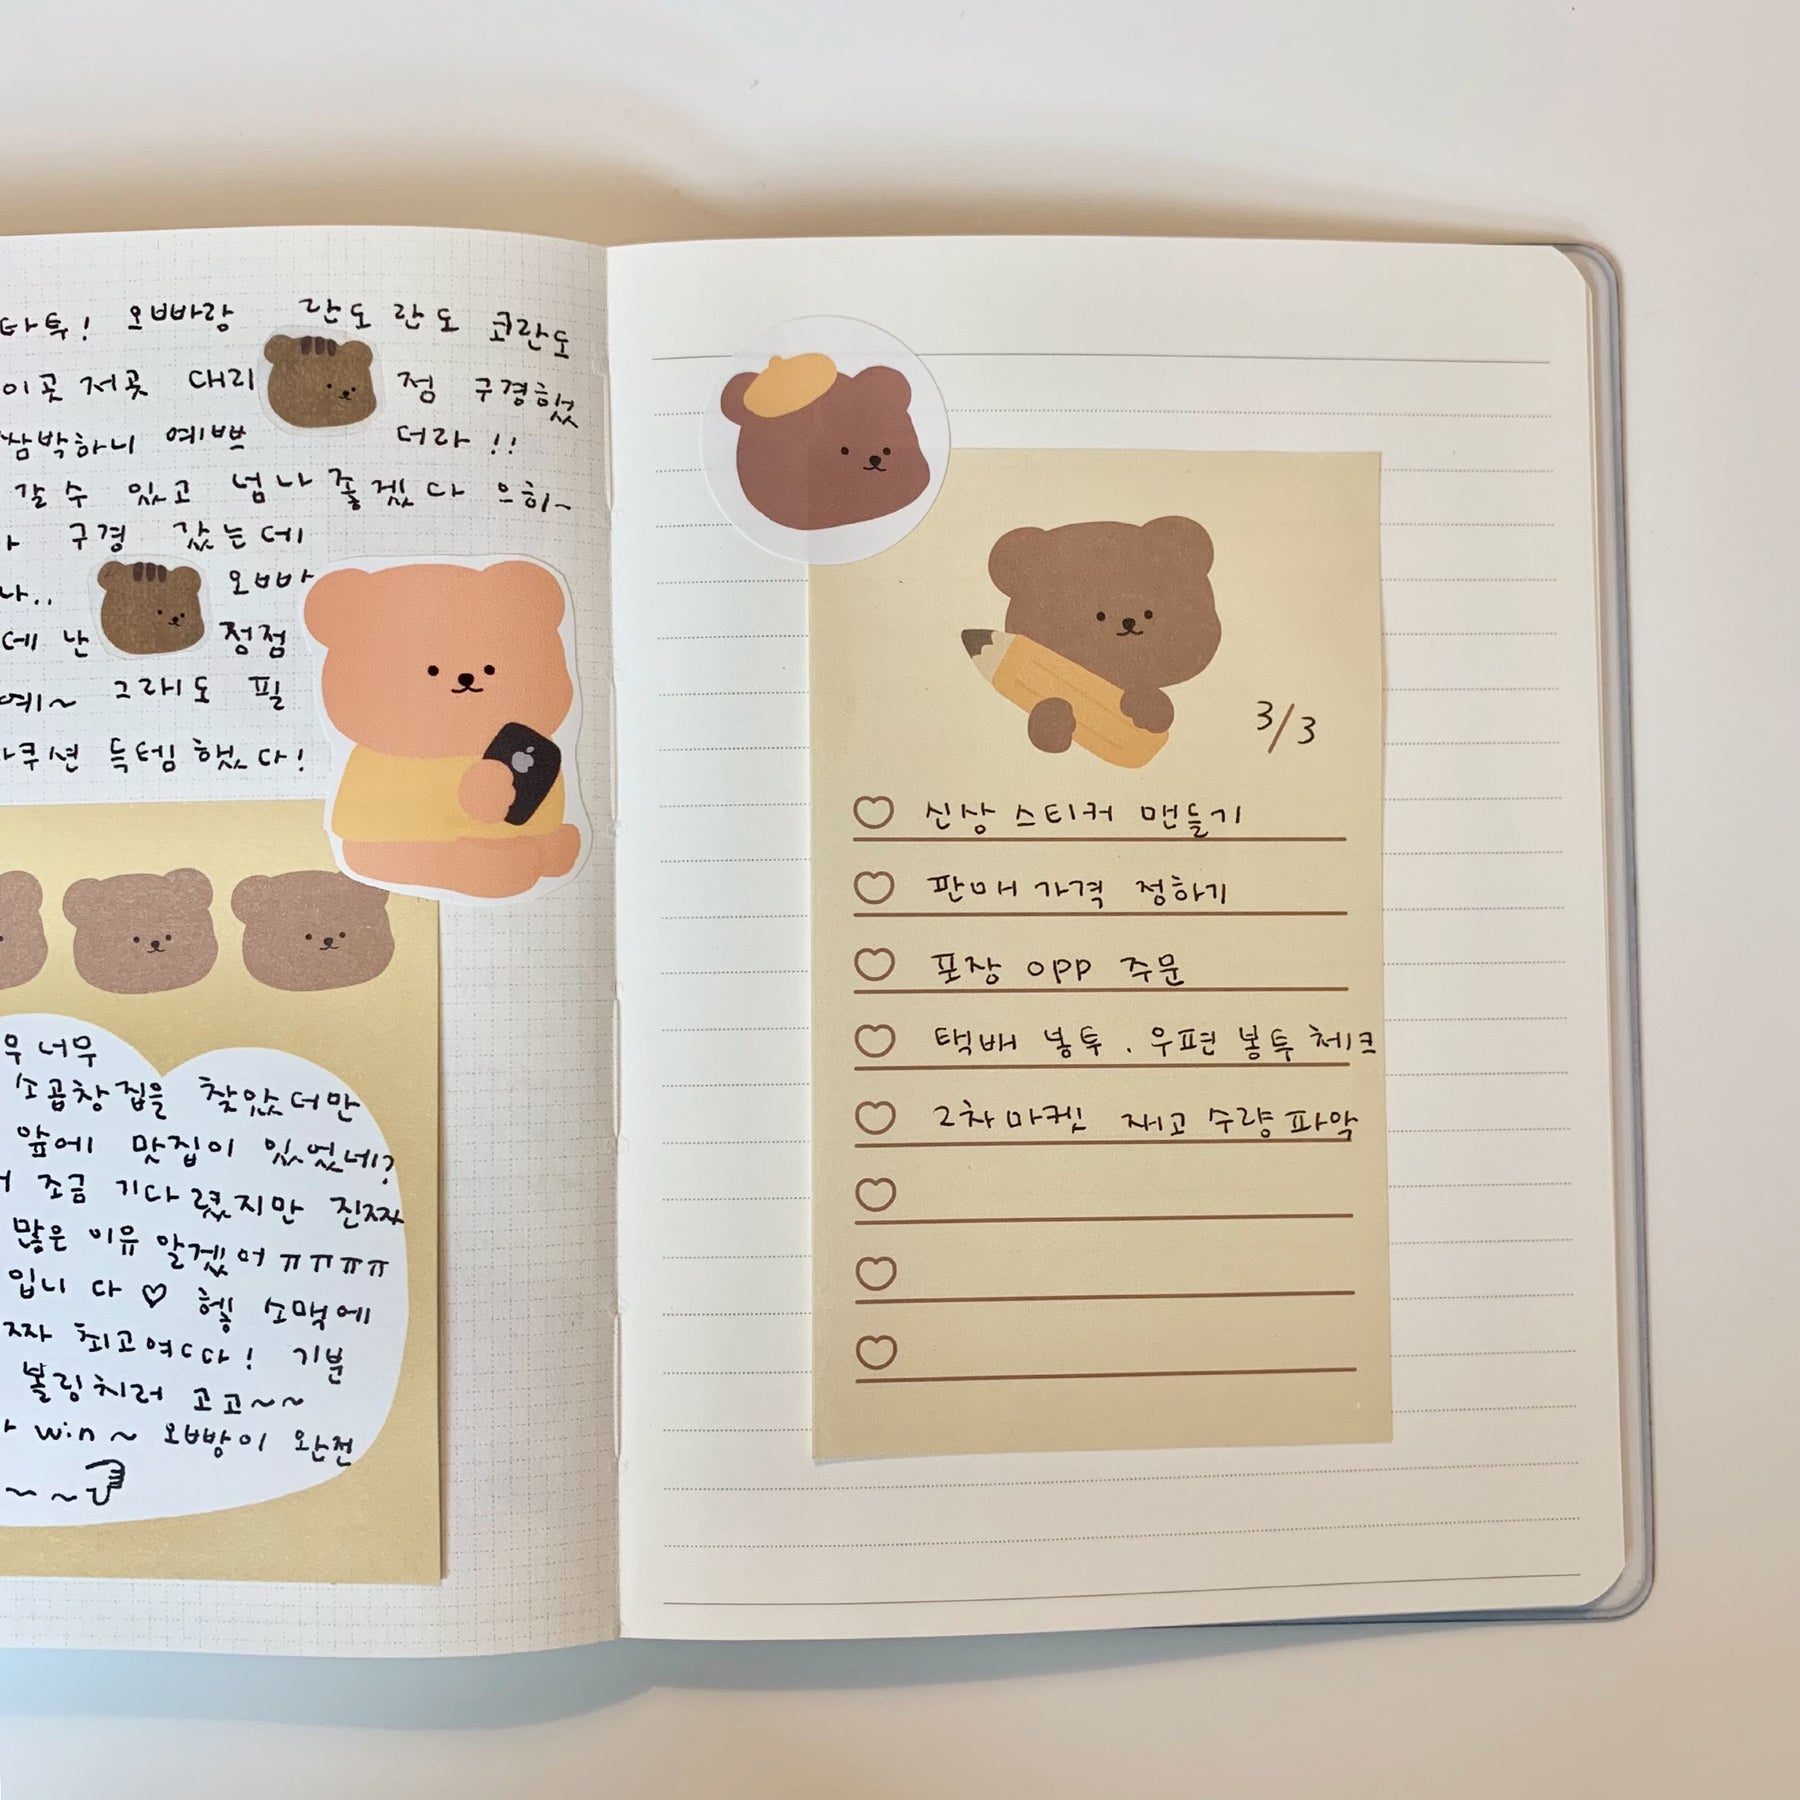 타투! 오빠랑 란도란도 코란도
이곳저곳 대리점 구경했
쌈박하니 예쁘더라!!
갈 수 있고 넘나 좋겠다 으히~
구경 갔는데
나.. 오빠
데 난 정점
예~ 그래도 필
쿠션 득템했다!
무 너무
소곱창집을 찾았더만
앞에 맛집이 있었네?
조금 기다렸지만 진짜
많은 이유 알겠어 ㅠㅠㅠㅠ
입니다♡ 헿 소맥에
짜 최고였다! 기분
볼링치러 고고~~
win~ 오빵이 완전
~~
3/3
신상 스티커 맨들기
판매 가격 정하기
포장 opp 주문
택배 봉투 · 우편 봉투 체크
2차 마켓 재고 수량 파악